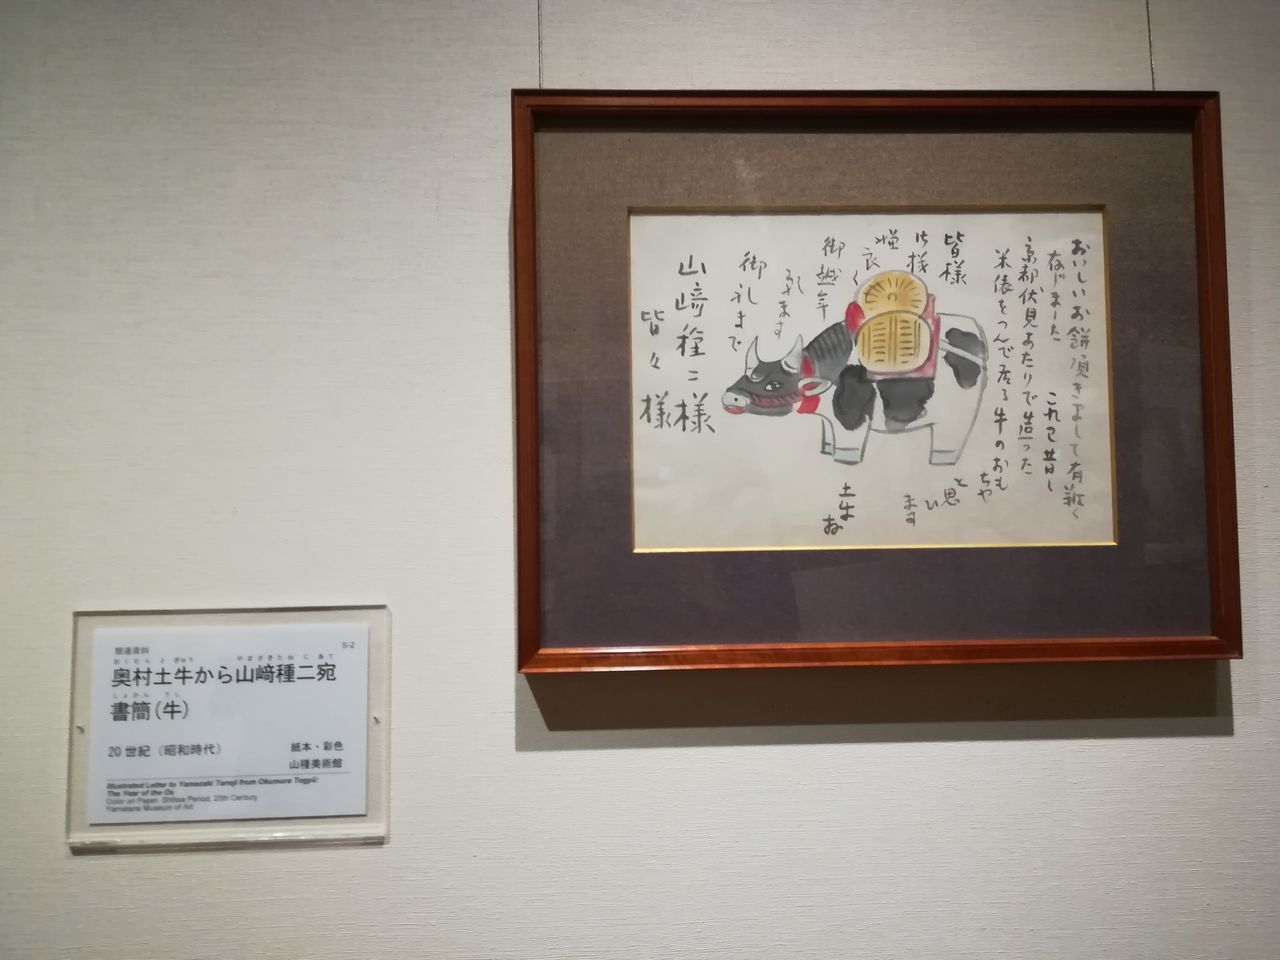 おいしいお餅頂きまして有難く
存じました これは昔し
京都伏見あたりで造った
米俵をつんで居る牛のおもちや
と思ひます
皆様
御機
良く
御越年
祈ます
御礼まで
山﨑種二様
皆々様
土牛
関連資料
S-2
おくむら と ぎゅう
やまざきたね に あて
奥村土牛から山﨑種二宛
しょかん うし
書簡（牛）
20 世紀（昭和時代）
紙本・彩色
山種美術館
Illustrated Letter to Yamazaki Taneji from Okumura Togyū:
The Year of the Ox
Color on Paper, Shōwa Period, 20th Century
Yamatane Museum of Art